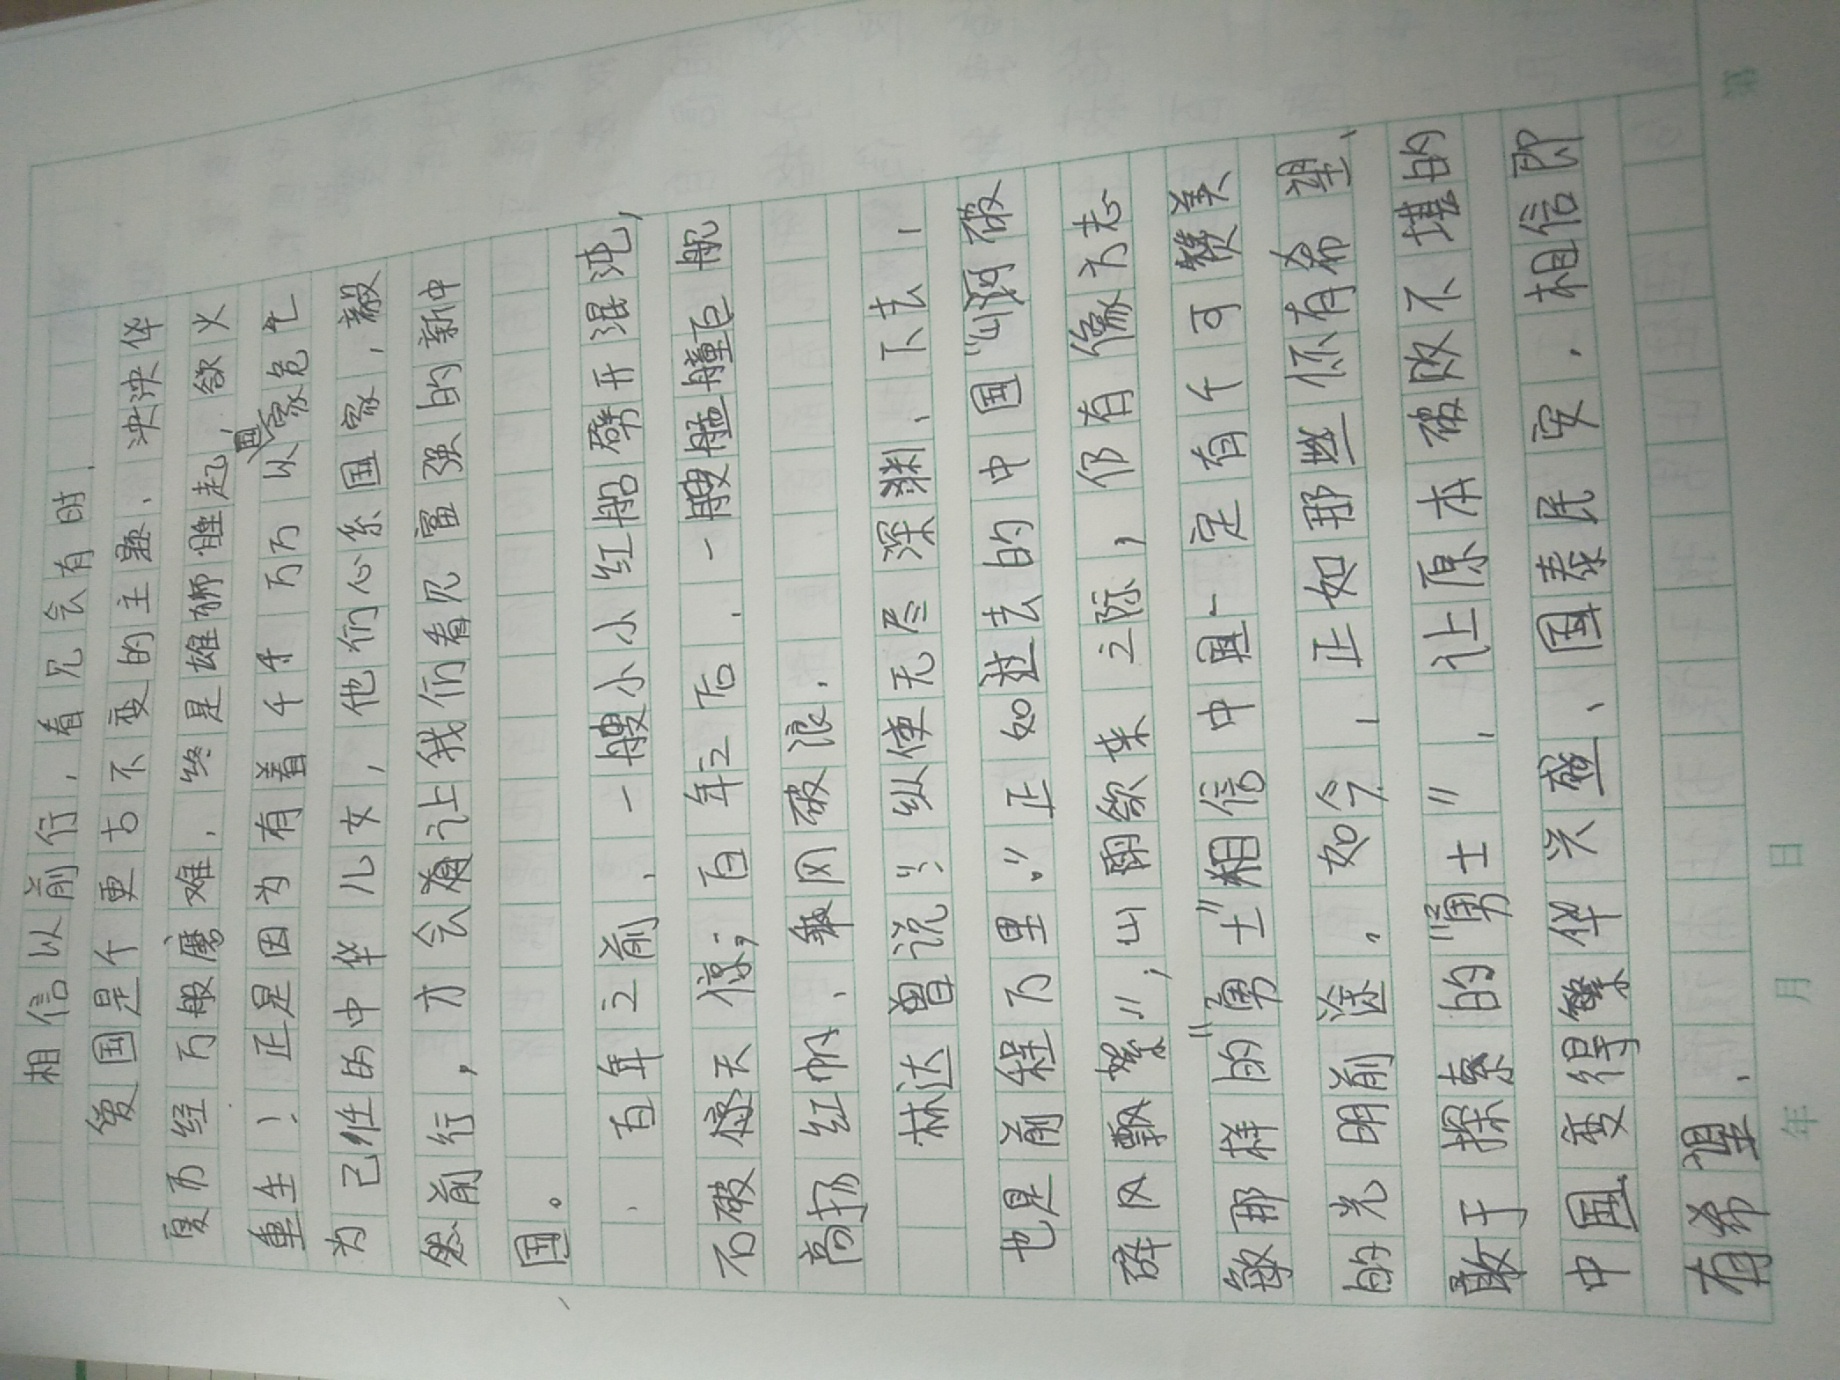 相信以前行，看见会有时．
爱国是个更古不变的主题、泱泱华
夏历经万般磨难，终是雄狮睡起，欲火
重生！正是因为有着千千万万以国家危亡
为己任的中华儿女，他们心系国家，毅
然前行，方会有让我们看见富强的新中
国。
百年之前，一艘小小红船劈开混沌，
石破惊天惊；百年之后．一艘艘艨艟巨舰
高扬红帆、乘风破浪．
林达曾说："纵使无尽深渊、下去，
也是前程万里."正如过去的中国"山河破
碎风飘絮"，山雨欲来之际，仍有像方志
敏那样的"勇士"相信中国一定有个可赞美
的光明前途。如今，正如那些怀有希望、
敢于探索的"勇士"，让原本破败不堪的
中国变得繁华兴盛、国泰民安．相信即
有希望．
年 月 日
第